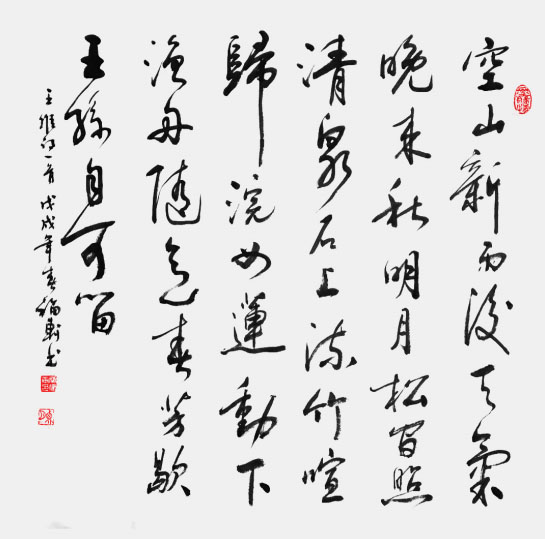 空山新雨後天氣
晚来秋明月松间照
清泉石上流竹喧
歸浣女蓮動下
漁舟随意春芳歇
王孫自可留
王维诗一首 戊戌年春 福书